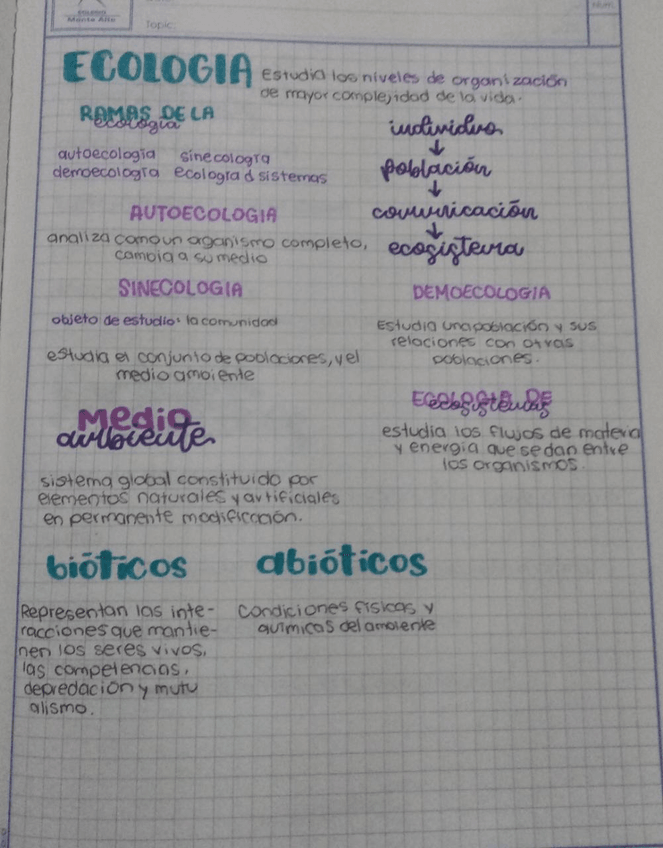 Monte Alto
Topic:
ECOLOGIA
Estudia los niveles de organización
de mayor complejidad de la vida.
RAMAS DE LA
ecología
autoecología sinecología
demoecología ecología d sistemas
individuo
↓
población
↓
comunicación
↓
ecosistema
AUTOECOLOGIA
analiza como un organismo completo,
cambia a su medio
SINECOLOGIA
objeto de estudio: la comunidad
estudia el conjunto de poblaciones, y el
medio ambiente
DEMOECOLOGIA
Estudia una población y sus
relaciones con otras
poblaciones.
ECOLOGIA DE
ecosistemas
estudia los flujos de materia
y energia que se dan entre
los organismos.
Medio
ambiente
sistema global constituido por
elementos naturales y artificiales
en permanente modificción.
bióticos
Representan las inte-
racciones que mantie-
nen los seres vivos,
las competencias,
depredación y mutu
alismo.
abióticos
Condiciones físicas y
químicas del ambiente